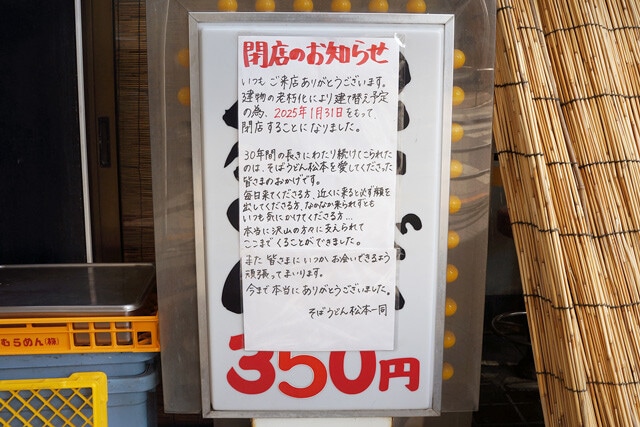 閉店のお知らせ
いつもご来店ありがとうございます。
建物の老朽化により建て替え予定
の為、2025年1月31日をもって、
閉店することになりました。
30年間の長きにわたり続けてこられた
のは、そばうどん松本を愛してくださった
皆さまのおかげです。
毎日来てくださる方、近くに来ると必ず顔を
出してくださる方、なかなか来られずとも
いつも気にかけてくださる方...
本当に沢山の方々に支えられて
ここまでくることができました。
また皆さまにいつかお会いできるよう
頑張ってまいります。
今まで本当にありがとうございました。
そばうどん松本一同
350円
むらめん(株)